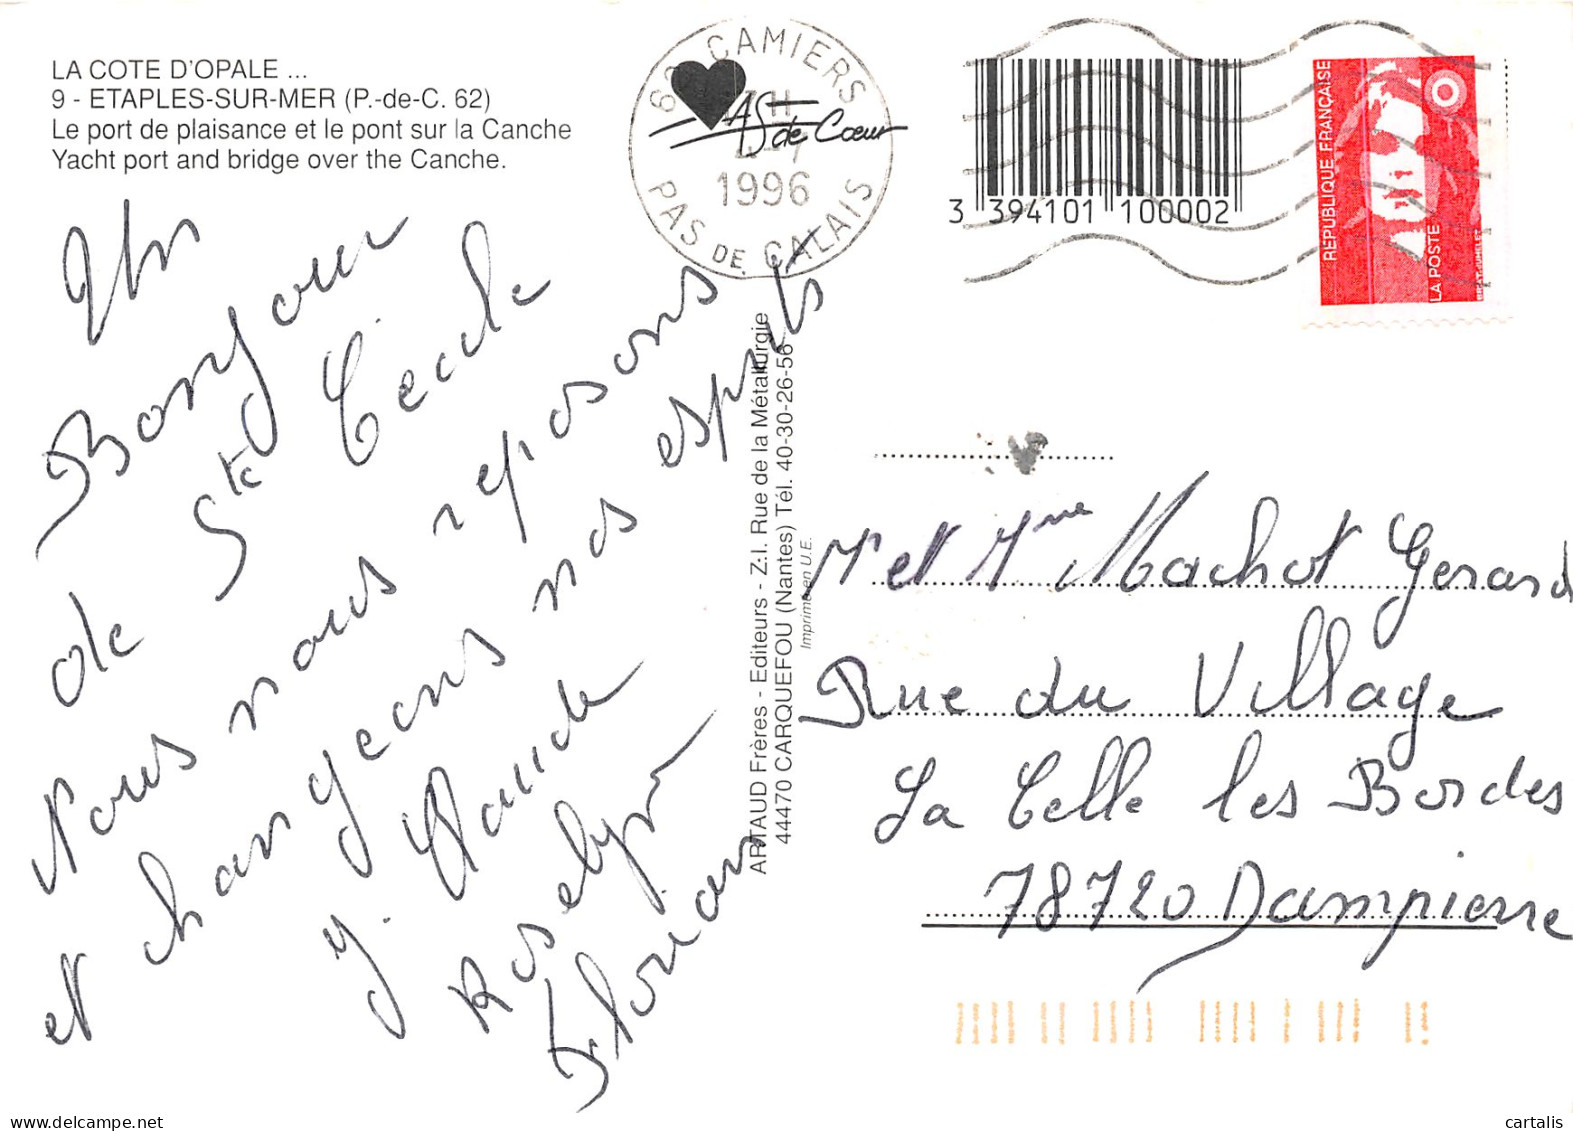 LA COTE D'OPALE ...
9 - ETAPLES-SUR-MER (P.-de-C. 62)
Le port de plaisance et le pont sur la Canche
Yacht port and bridge over the Canche.
Un
Bonjour
de Ste Cécile
Nous nous reposons
et changeons nos esprits
J. Claude
Roselyne
Florian
62 CAMIERS
1996
PAS DE CALAIS
AS de Cœur
3 394101 100002
REPUBLIQUE FRANÇAISE
LA POSTE
ARTAUD Frères - Editeurs - Z.I. Rue de la Métallurgie
44470 CARQUEFOU (Nantes) Tél. 40-30-26-56
Imprimé en U.E.
Mr et Mme Machot Gerard
Rue du Village
La Celle les Bordes
78720 Dampierre
cartalis
delcampe.net